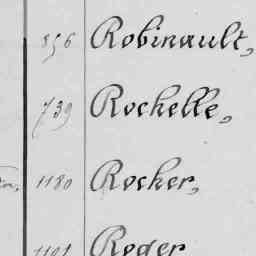 856 Robinault,
739 Rochelle,
1180 Rocher,
1191 Roger